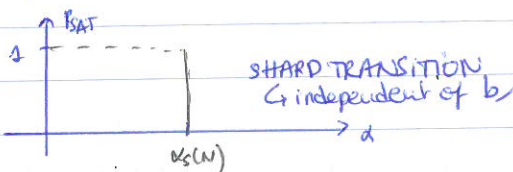 P_SAT
1
SHARD TRANSITION
↳ independent of b,
α
α_s(N)